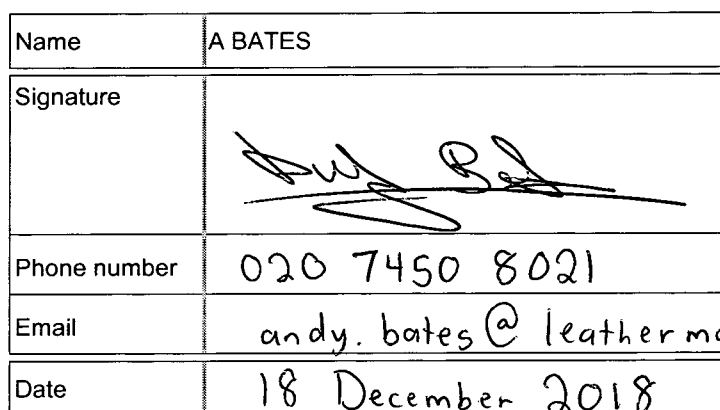 Name A BATES
Signature Andy Bates
Phone number 020 7450 8021
Email andy.bates@leatherma
Date 18 December 2018